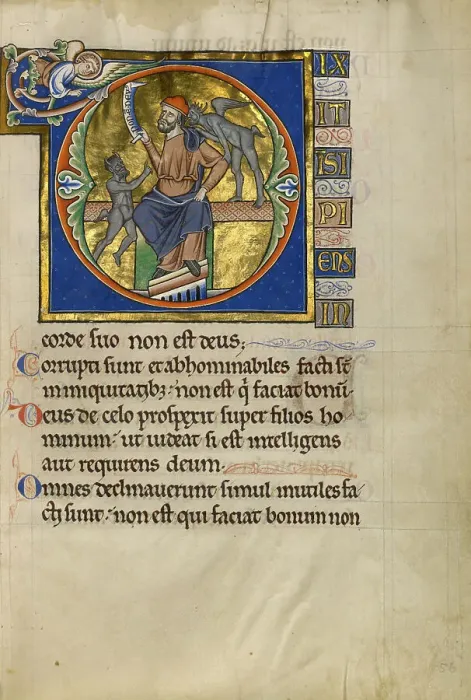 D
IX
IT
ISI
PI
ENS
IN
corde suo non est deus;
Corrupti sunt et abhominabiles facti st̄
in iniquitatibꝫ: non est q̇ faciat bonū·
Deus de celo prospexit super filios ho
minum: ut uideat si est intelligens
aut requirens deum.
Omnes declinauerunt simul inutiles fa
cti sunt: non est qui faciat bonum non